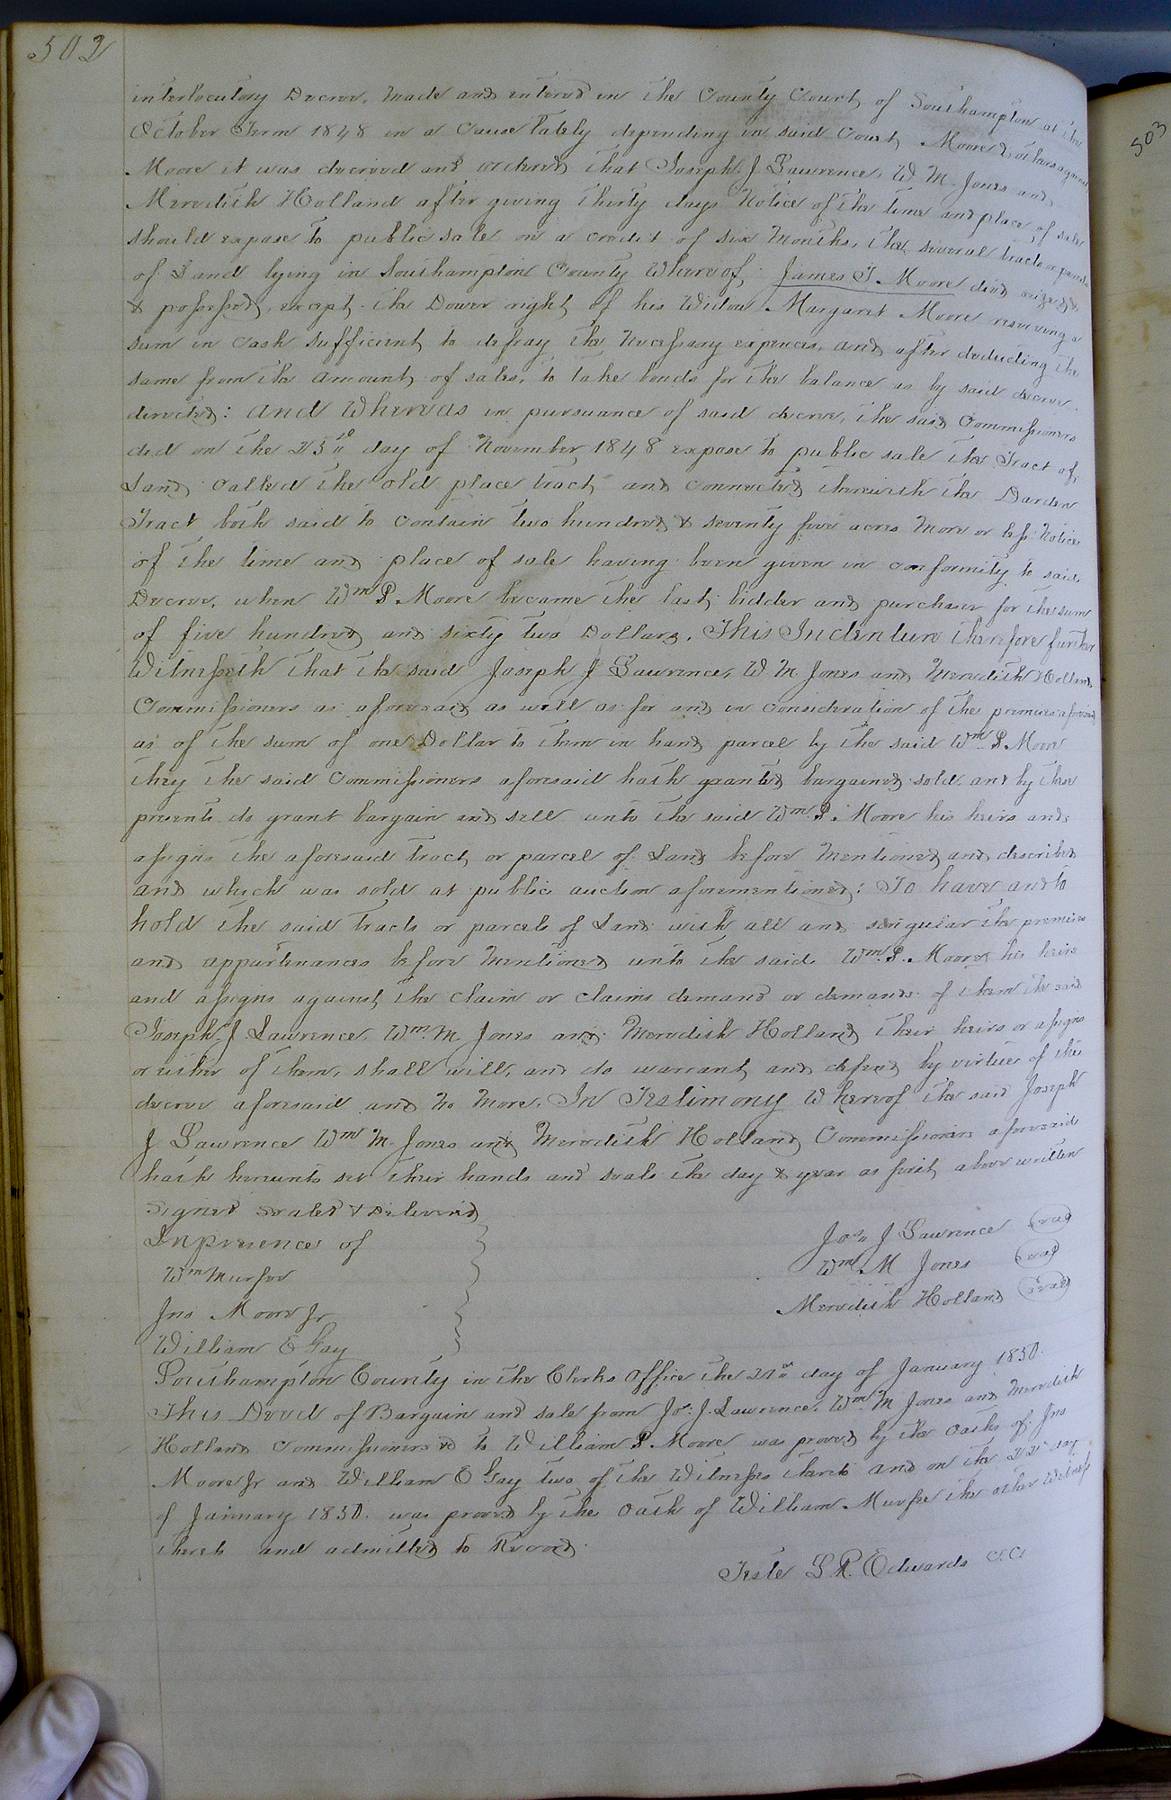 502
503
interlocutory Decree, made and entered in the County Court of Southampton at the
October Term 1848 in a cause lately depending in said Court, Moore & others against
Moore it was decreed and ordered that Joseph J Lawrence, W. M. Jones and
Meredith Holland after giving thirty days Notice of the time and place of sale
should expose to public sale on a credit of six Months, the several tracts or parcels
of Land lying in Southampton County whereof, James T. Moore died seized &
& possessed, except the Dower right of his Widow Margaret Moore reserving a
sum in cash sufficient to defray the necessary expences, and after deducting the
same from the amount of sales, to take bonds for the balance as by said decree
directed: and Whereas in pursuance of said decree, the said Commissioners
did on the day of November 1848 expose to public sale the Tract of
Land called the "old place tract" and connected therewith the Darden
Tract both said to contain two hundred & seventy five acres more or less Notice
of the time and place of sale having been given in conformity to said
Decree, when Wm. P. Moore became the last bidder and purchaser for the sum
of five hundred and sixty two Dollars. This Indenture therefore further
Witnesseth that the said Joseph J Lawrence, W. M. Jones and Meredith Holland
Commissioners as aforesaid as well as for and in consideration of the premises aforesaid
as of the sum of one Dollar to them in hand parcel by the said Wm. P. Moore
they the said Commissioners aforesaid hath granted bargained sold, and by these
presents do grant bargain and sell unto the said Wm. P. Moore his heirs and
assigns the aforesaid tract or parcel of Land before mentioned and described
and which was sold at public auction aforementioned: To have and to
hold the said tracts or parcels of Land with all and singular the premises
and appurtenances before mentioned unto the said Wm. P. Moore his heirs
and assigns against the claim or claims demand or demands of them the said
Joseph J Lawrence, Wm. M. Jones and Meredith Holland their heirs or assigns
or either of them, shall will, and do warrant and defend by virtue of the
decree aforesaid and no more. In Testimony Whereof the said Joseph
J Lawrence Wm M. Jones and Meredith Holland Commissioners aforesaid
hath hereunto set their hands and seals the day & year as first above written
Signed Sealed & Delivered
In presence of
Wm Murfee
Jno Moore Jr
William E Gay
Jos. J Lawrence (seal)
Wm M Jones (seal)
Meredith Holland (seal)
Southampton County in the Clerks Office the day of January 1850.
This Deed of Bargain and sale from Jo. J. Lawrence, Wm M Jones and Meredith
Holland Commissioners &c to William P. Moore was proved by the oaths of Jno
Moore Jr and William E Gay two of the Witnesses thereto and on the day
of January 1850. was proved by the oath of William Murfee the other Witness
thereto and admitted to Record.
Teste L. R. Edwards C.C.